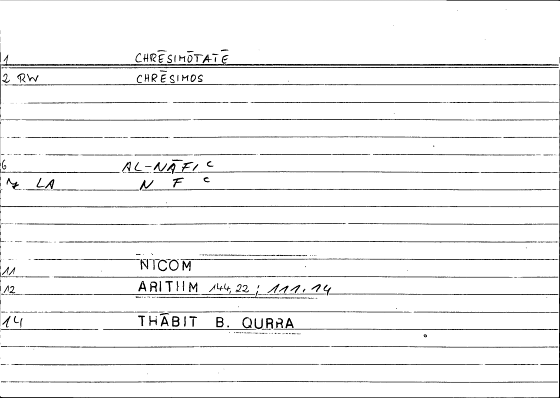 1 CHRĒSIMŌTATĒ
2 RW CHRĒSIMOS
6 AL-NĀFIᶜ
LA N F ᶜ
11 NICOM
12 ARITHM 144,22 ; 111.14
14 THĀBIT B. QURRA